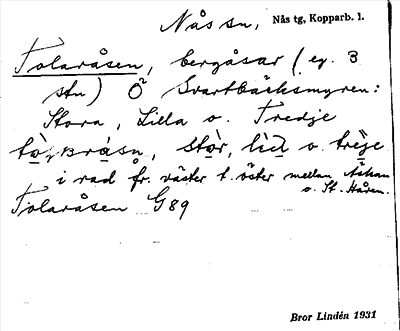 Nås sn, Nås tg, Kopparb. l.
Tolaråsen, bergåsar (eg. 3
stn) Ö Svartbäcksmyren:
Stora, Lilla o. Tredje
stòr, lìd o. trèje
i rad fr. väster t. öster mellan Näkan
o. St. Håren.
Tolaråsen G89
Bror Lindén 1931